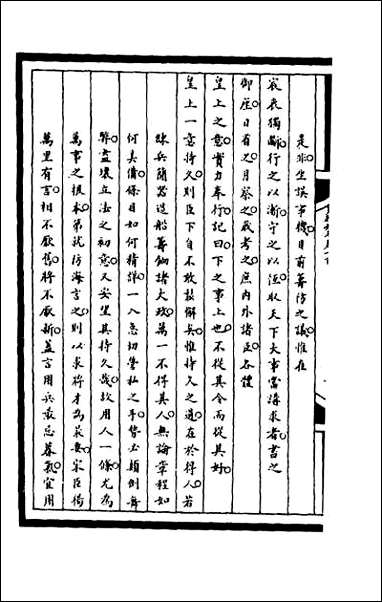 是非坐誤事機目前籌防之議惟在
宸衷獨斷行之以漸守之以恆取天下大事當講求者書之
御座日省之月察之歲考之庶内外諸臣各體
皇上之意實力奉行記曰下之事上也不從其令而從其好
皇上一意持久則臣下自不敢懈矣惟持久之道在於得人若
練兵簡器造船籌餉諸大政萬一不得其人無論章程如
何美備條目如何精詳一入急切營私之手勢必顛倒舞
弊盡壞立法之初意又安望其持久哉故用人一條尤為
萬事之根本第就防海言之則以求將才為最要宋臣
萬里有言相不厭舊將不厭新蓋言用兵最忌暮氣宜用